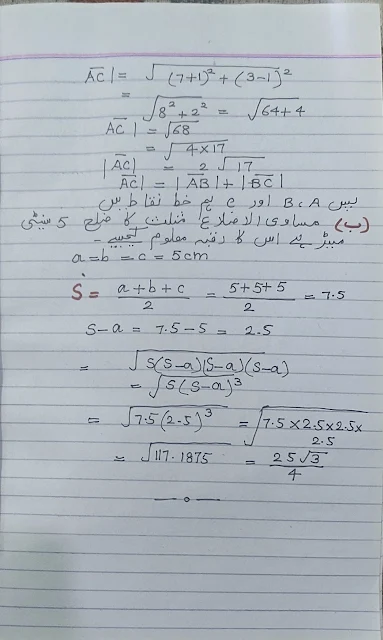 AC| = √(7+1)² + (3-1)²
=
√8² + 2² = √64+4
AC | = √68
= √4×17
|AC| = 2√17
AC| = |AB| + |BC|
پس A، B اور C ہم خط نقاط ہیں
(ب) مساوی الاضلاع مثلث کا ضلع 5 سینٹی
میٹر ہے اس کا رقبہ معلوم کیجیے۔
a=b=c=5cm
S = a+b+c/2 = 5+5+5/2 = 7.5
S-a = 7.5-5 = 2.5
= √S(S-a)(S-a)(S-a)
= √S(S-a)³
= √7.5(2.5)³ = √7.5×2.5×2.5×
2.5
= √117.1875 = 25√3/4